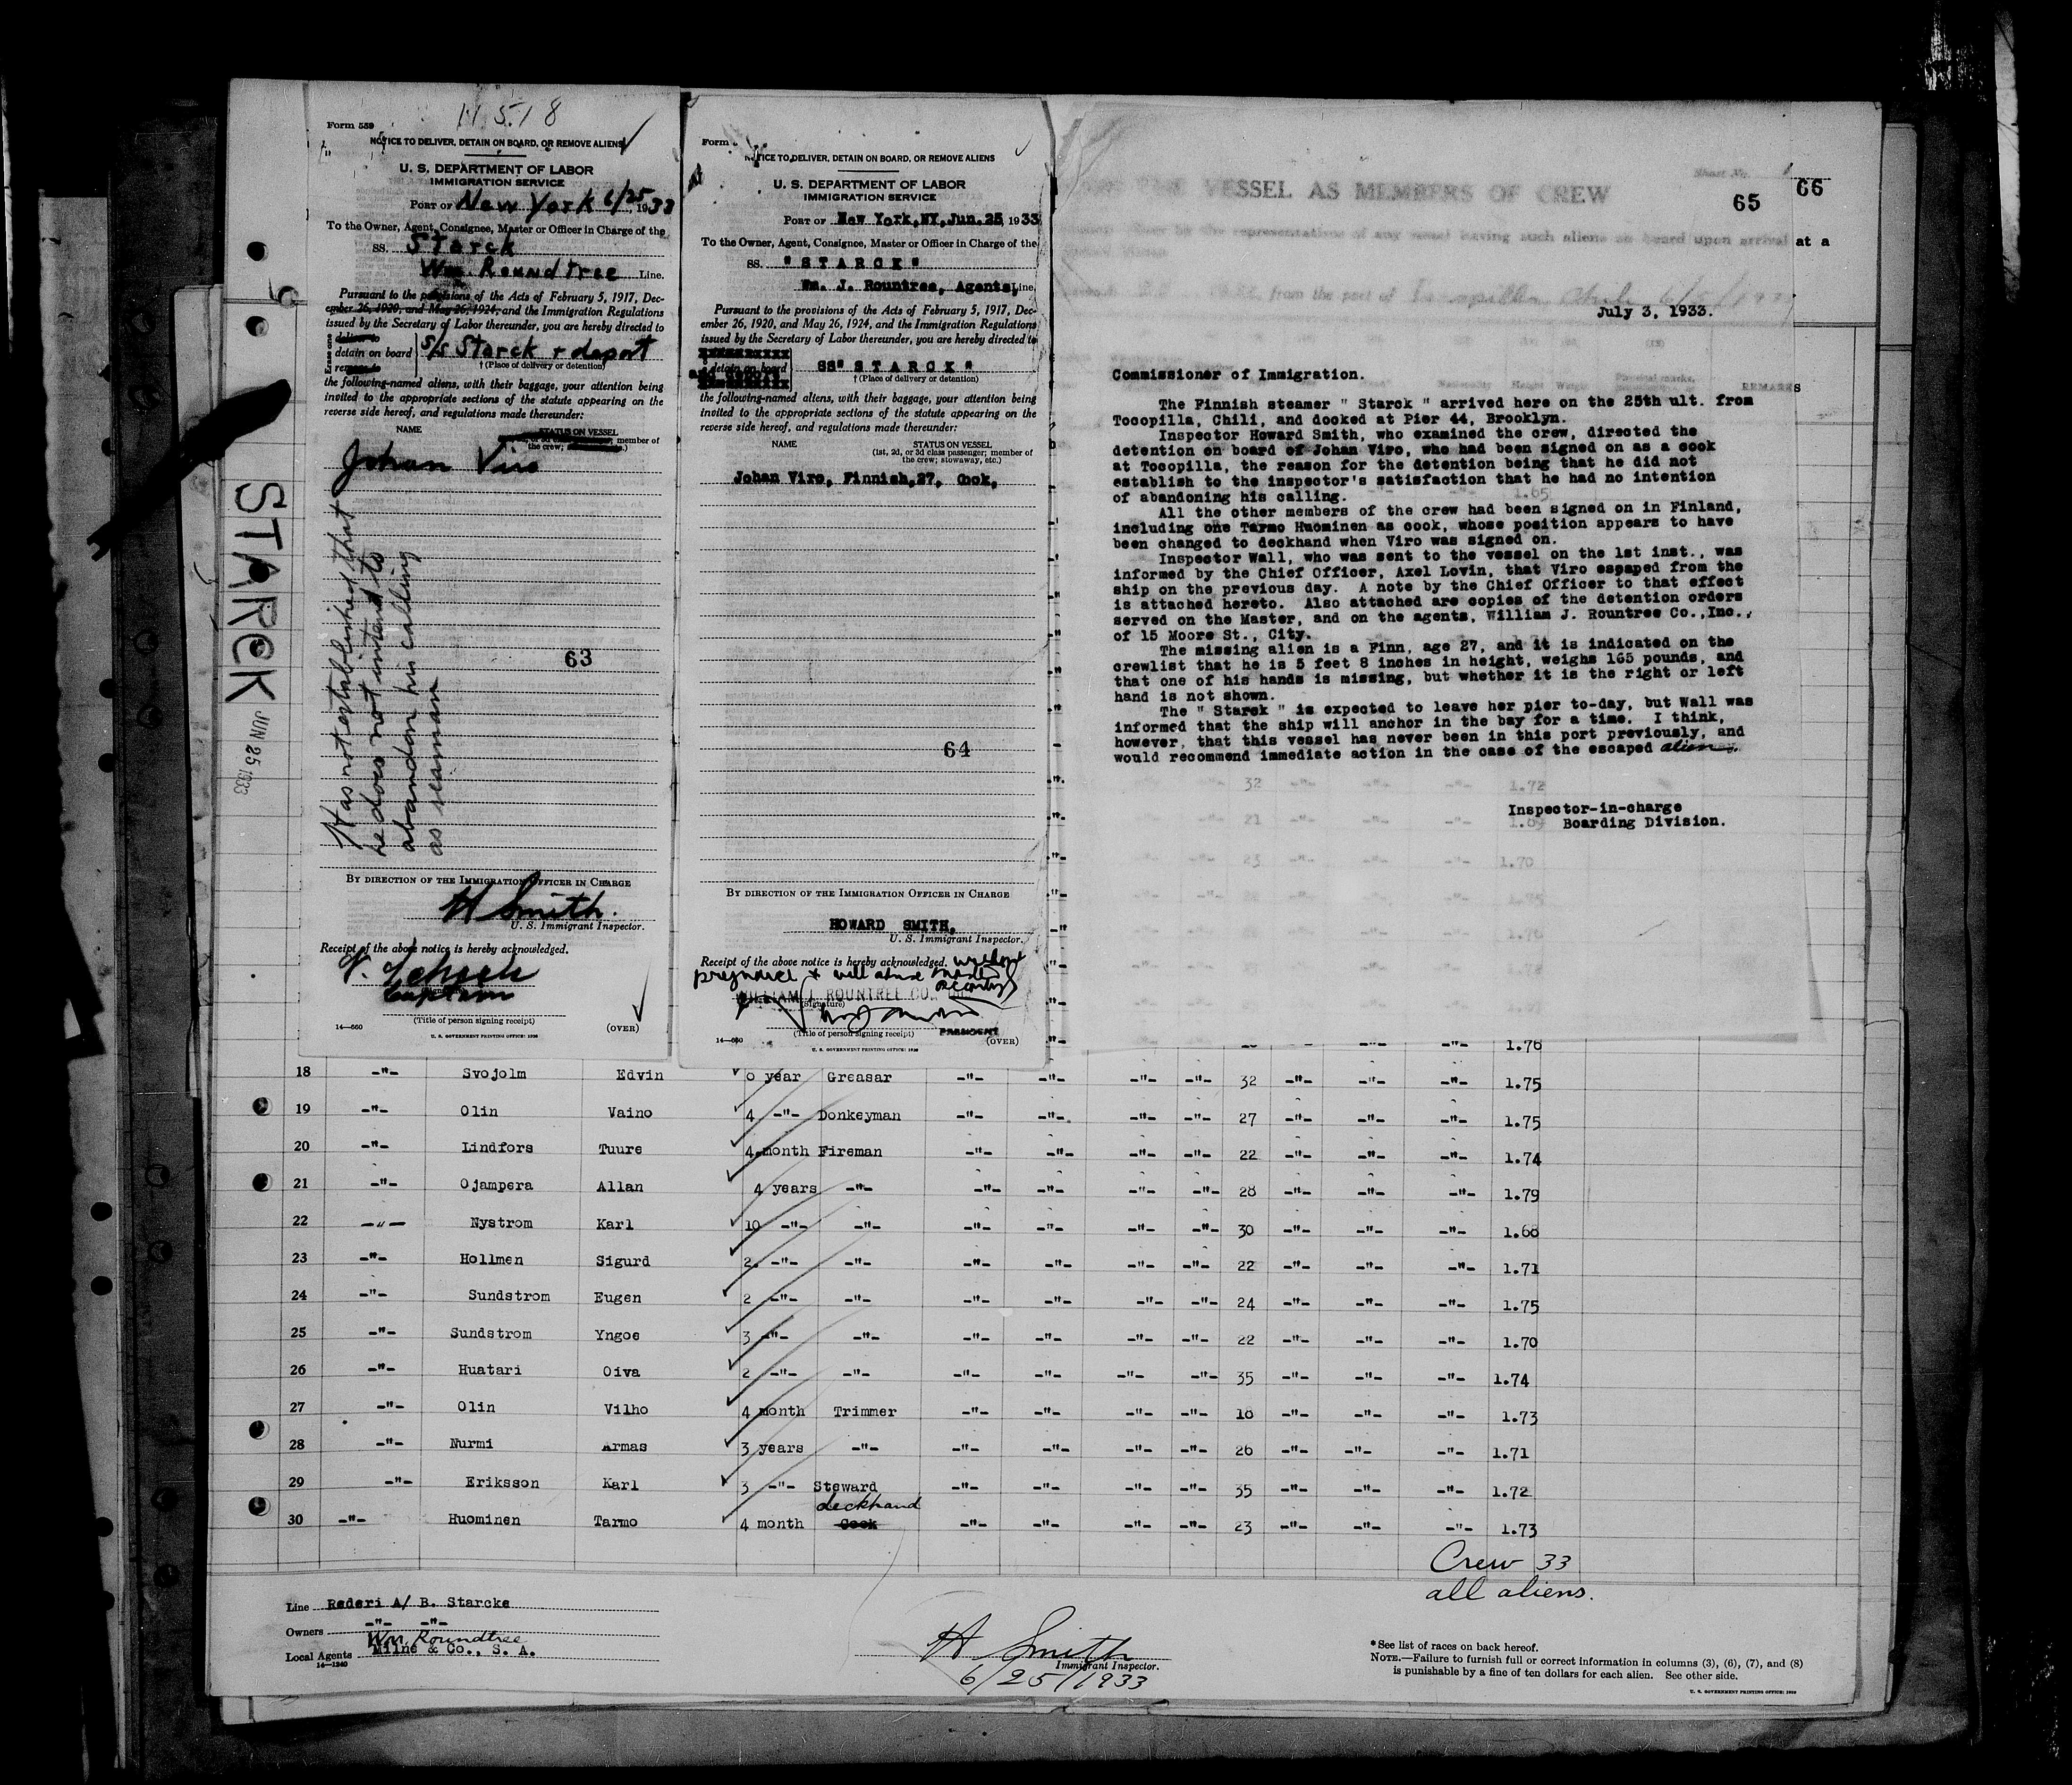 11518
Form 559
NOTICE TO DELIVER, DETAIN ON BOARD, OR REMOVE ALIENS
U. S. DEPARTMENT OF LABOR
IMMIGRATION SERVICE
PORT OF New York 6/25, 1933
To the Owner, Agent, Consignee, Master or Officer in Charge of the
SS. Starck
Wm. Roundtree Line.
Pursuant to the provisions of the Acts of February 5, 1917, Dec-
ember 26, 1920, and May 26, 1924, and the Immigration Regulations
issued by the Secretary of Labor thereunder, you are hereby directed to
Erase one
deliver to
detain on board
remove to
s/s Starck + deport
† (Place of delivery or detention)
the following-named aliens, with their baggage, your attention being
invited to the appropriate sections of the statute appearing on the
reverse side hereof, and regulations made thereunder:
NAME STATUS ON VESSEL
member of
the crew;
Johan Viro
Has not established that
he does not intend to
abandon his calling
as seaman
63
BY DIRECTION OF THE IMMIGRATION OFFICER IN CHARGE
H Smith.
U. S. Immigrant Inspector.
Receipt of the above notice is hereby acknowledged.
Captain
(Signature)
(Title of person signing receipt)
14—660 (OVER)
U. S. GOVERNMENT PRINTING OFFICE:
STARCK
JUN 25 1933
Form
NOTICE TO DELIVER, DETAIN ON BOARD, OR REMOVE ALIENS
U. S. DEPARTMENT OF LABOR
IMMIGRATION SERVICE
PORT OF New York, NY, Jun. 25, 1933
To the Owner, Agent, Consignee, Master or Officer in Charge of the
SS. "STARCK"
Wm. J. Rountree, Agents, Line.
Pursuant to the provisions of the Acts of February 5, 1917, Dec-
ember 26, 1920, and May 26, 1924, and the Immigration Regulations
issued by the Secretary of Labor thereunder, you are hereby directed to
detain on board
and deport
SS" STARCK "
† (Place of delivery or detention)
the following-named aliens, with their baggage, your attention being
invited to the appropriate sections of the statute appearing on the
reverse side hereof, and regulations made thereunder:
NAME STATUS ON VESSEL
(1st, 2d, or 3d class passenger; member of
the crew; stowaway, etc.)
Johan Viro, Finnish, 27, Cook,
64
BY DIRECTION OF THE IMMIGRATION OFFICER IN CHARGE
HOWARD SMITH,
U. S. Immigrant Inspector.
Receipt of the above notice is hereby acknowledged. without
prejudice & will advise master
WILLIAM J. ROUNTREE CO., INC.
(Signature)
(Title of person signing receipt) PRESIDENT
14—660 (OVER)
U. S. GOVERNMENT PRINTING OFFICE:
Sheet No. 1
VESSEL AS MEMBERS OF CREW
65
66
by the representatives of any vessel having such aliens on board upon arrival at a
from the port of Tocopilla Chile
REMARKS
July 3, 1933.
Commissioner of Immigration.
The Finnish steamer " Starck " arrived here on the 25th ult. from
Tocopilla, Chili, and docked at Pier 44, Brooklyn.
Inspector Howard Smith, who examined the crew, directed the
detention on board of Johan Viro, who had been signed on as a cook
at Tocopilla, the reason for the detention being that he did not
establish to the inspector's satisfaction that he had no intention
of abandoning his calling.
All the other members of the crew had been signed on in Finland,
including one Tarmo Huominen as cook, whose position appears to have
been changed to deckhand when Viro was signed on.
Inspector Wall, who was sent to the vessel on the 1st inst., was
informed by the Chief Officer, Axel Lovin, that Viro espaped from the
ship on the previous day. A note by the Chief Officer to that effect
is attached hereto. Also attached are copies of the detention orders
served on the Master, and on the agents, William J. Rountree Co.,Inc.,
of 15 Moore St., City.
The missing alien is a Finn, age 27, and it is indicated on the
crewlist that he is 5 feet 8 inches in height, weighs 165 pounds, and
that one of his hands is missing, but whether it is the right or left
hand is not shown.
The " Starck " is expected to leave her pier to-day, but Wall was
informed that the ship will anchor in the bay for a time. I think,
however, that this vessel has never been in this port previously, and
would recommend immediate action in the case of the escaped alien.
Inspector-in-charge
Boarding Division.
1.76
18 -"- Svojolm Edvin 8 year Greasar -"- -"- -"- -"- 32 -"- -"- -"- 1.75
19 -"- Olin Vaino 4 -"- Donkeyman -"- -"- -"- -"- 27 -"- -"- -"- 1.75
20 -"- Lindfors Tuure 4 month Fireman -"- -"- -"- -"- 22 -"- -"- -"- 1.74
21 -"- Ojampera Allan 4 years -"- -"- -"- -"- -"- 28 -"- -"- -"- 1.79
22 -"- Nystrom Karl 10 -"- -"- -"- -"- -"- -"- 30 -"- -"- -"- 1.68
23 -"- Hollmen Sigurd 2 -"- -"- -"- -"- -"- -"- 22 -"- -"- -"- 1.71
24 -"- Sundstrom Eugen 2 -"- -"- -"- -"- -"- -"- 24 -"- -"- -"- 1.75
25 -"- Sundstrom Yngoe 3 -"- -"- -"- -"- -"- -"- 22 -"- -"- -"- 1.70
26 -"- Huatari Oiva 2 -"- -"- -"- -"- -"- -"- 35 -"- -"- -"- 1.74
27 -"- Olin Vilho 4 month Trimmer -"- -"- -"- -"- 18 -"- -"- -"- 1.73
28 -"- Nurmi Armas 3 years -"- -"- -"- -"- -"- 26 -"- -"- -"- 1.71
29 -"- Eriksson Karl 3 -"- Steward -"- -"- -"- -"- 35 -"- -"- -"- 1.72
deckhand
30 -"- Huominen Tarmo 4 month Cook -"- -"- -"- -"- 23 -"- -"- -"- 1.73
Crew 33
all aliens.
Line Rederi A/ B. Starcke
Owners -"- -"-
Wm. Roundtree
Local Agents Milne & Co., S. A.
14—1240
H Smith
Immigrant Inspector.
6/25/1933
* See list of races on back hereof.
NOTE.—Failure to furnish full or correct information in columns (3), (6), (7), and (8)
is punishable by a fine of ten dollars for each alien. See other side.
U. S. GOVERNMENT PRINTING OFFICE: